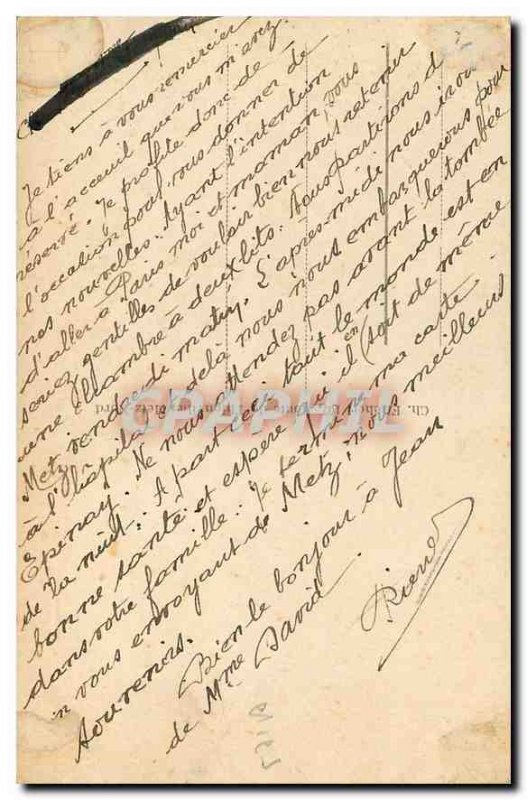 Je tiens à vous remercier
à l'acceuil que vous m'avez
réservé. Je profite donc de
l'occation pour vous donner de
nos nouvelles. Ayant l'intention
d'aller à Paris moi et maman, vous
seriez gentilles de vouloir bien nous retenir
une chambre à deux lits. Nous partirons d
Metz vendredi matin. L'après-midi nous irons
à l'hôpital et delà nous nous embarquerons pour
Epinay. Ne nous attendez pas avant la tombée
de la nuit. A part cela tout le monde est en
bonne santé et espère qu'il en soit de même
dans votre famille. Je termine ma carte
en vous envoyant de Metz, nos meilleurs
souvenirs.
Bien le bonjour à Jean
de Mme David.
Pierre